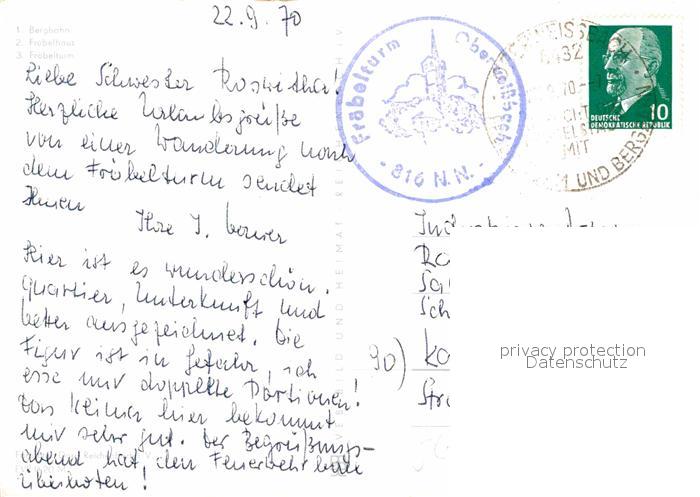 22.9.70
1. Bergbahn
2. Fröbelhaus
3. Fröbelturm
Liebe Schwester Roswitha!
Herzliche Urlaubsgrüße
von einer Wanderung nach
dem Fröbelturm sendet
Ihnen
Ihre J.
Hier ist es wunderschön.
Quartier, Unterkunft und
Wetter ausgezeichnet. Die
Figur ist in Gefahr, ich
esse nur doppelte Portionen!
Das Klima hier bekommt
mir sehr gut. Der Begrüßungs-
abend hat den Feuerwehrball
überboten!
Fröbelturm Oberweißbach
- 816 N.N. -
6432
MIT
UND BERG
10
DEUTSCHE
DEMOKRATISCHE REPUBLIK
BILD UND HEIMAT
90)
privacy protection
Datenschutz